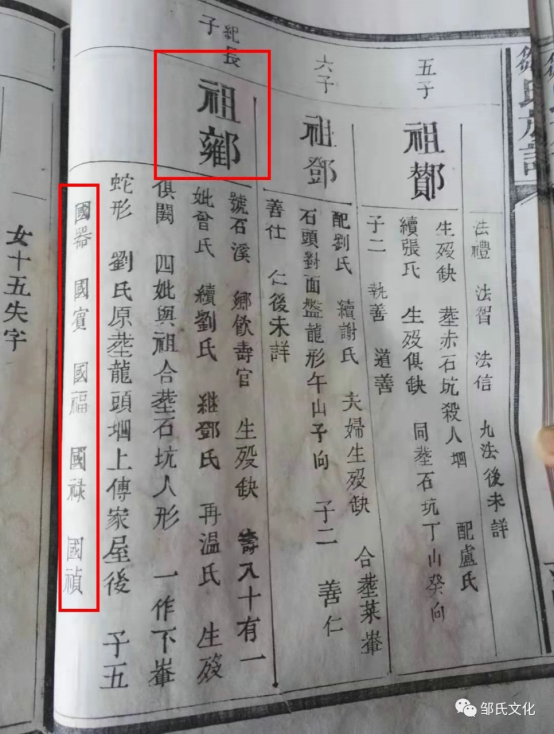 鄒氏族譜
法禮 法習 法信 九法後未詳
五子
祖鄼
生殁缺 塟赤石坑殺人堋 配盧氏
續張氏 生殁俱缺 同塟石坑丁山癸向
子二 執善 道善
六子
祖鄧
配劉氏 續謝氏 夫婦生殁缺 合塟萊峯
石頭對面盤龍形午山子向 子二 善仁
善仕 仁後未詳
紀長子
祖
號石溪 鄉飲壽官 生殁缺 壽八十有一
妣曾氏 續劉氏 繼鄧氏 再温氏 生殁
俱闕 四妣與祖合塟石坑人形 一作下峯
蛇形 劉氏原塟龍頭堋上傳家屋後 子五
國器 國賓 國福 國祿 國禎
女十五失字
邹氏文化